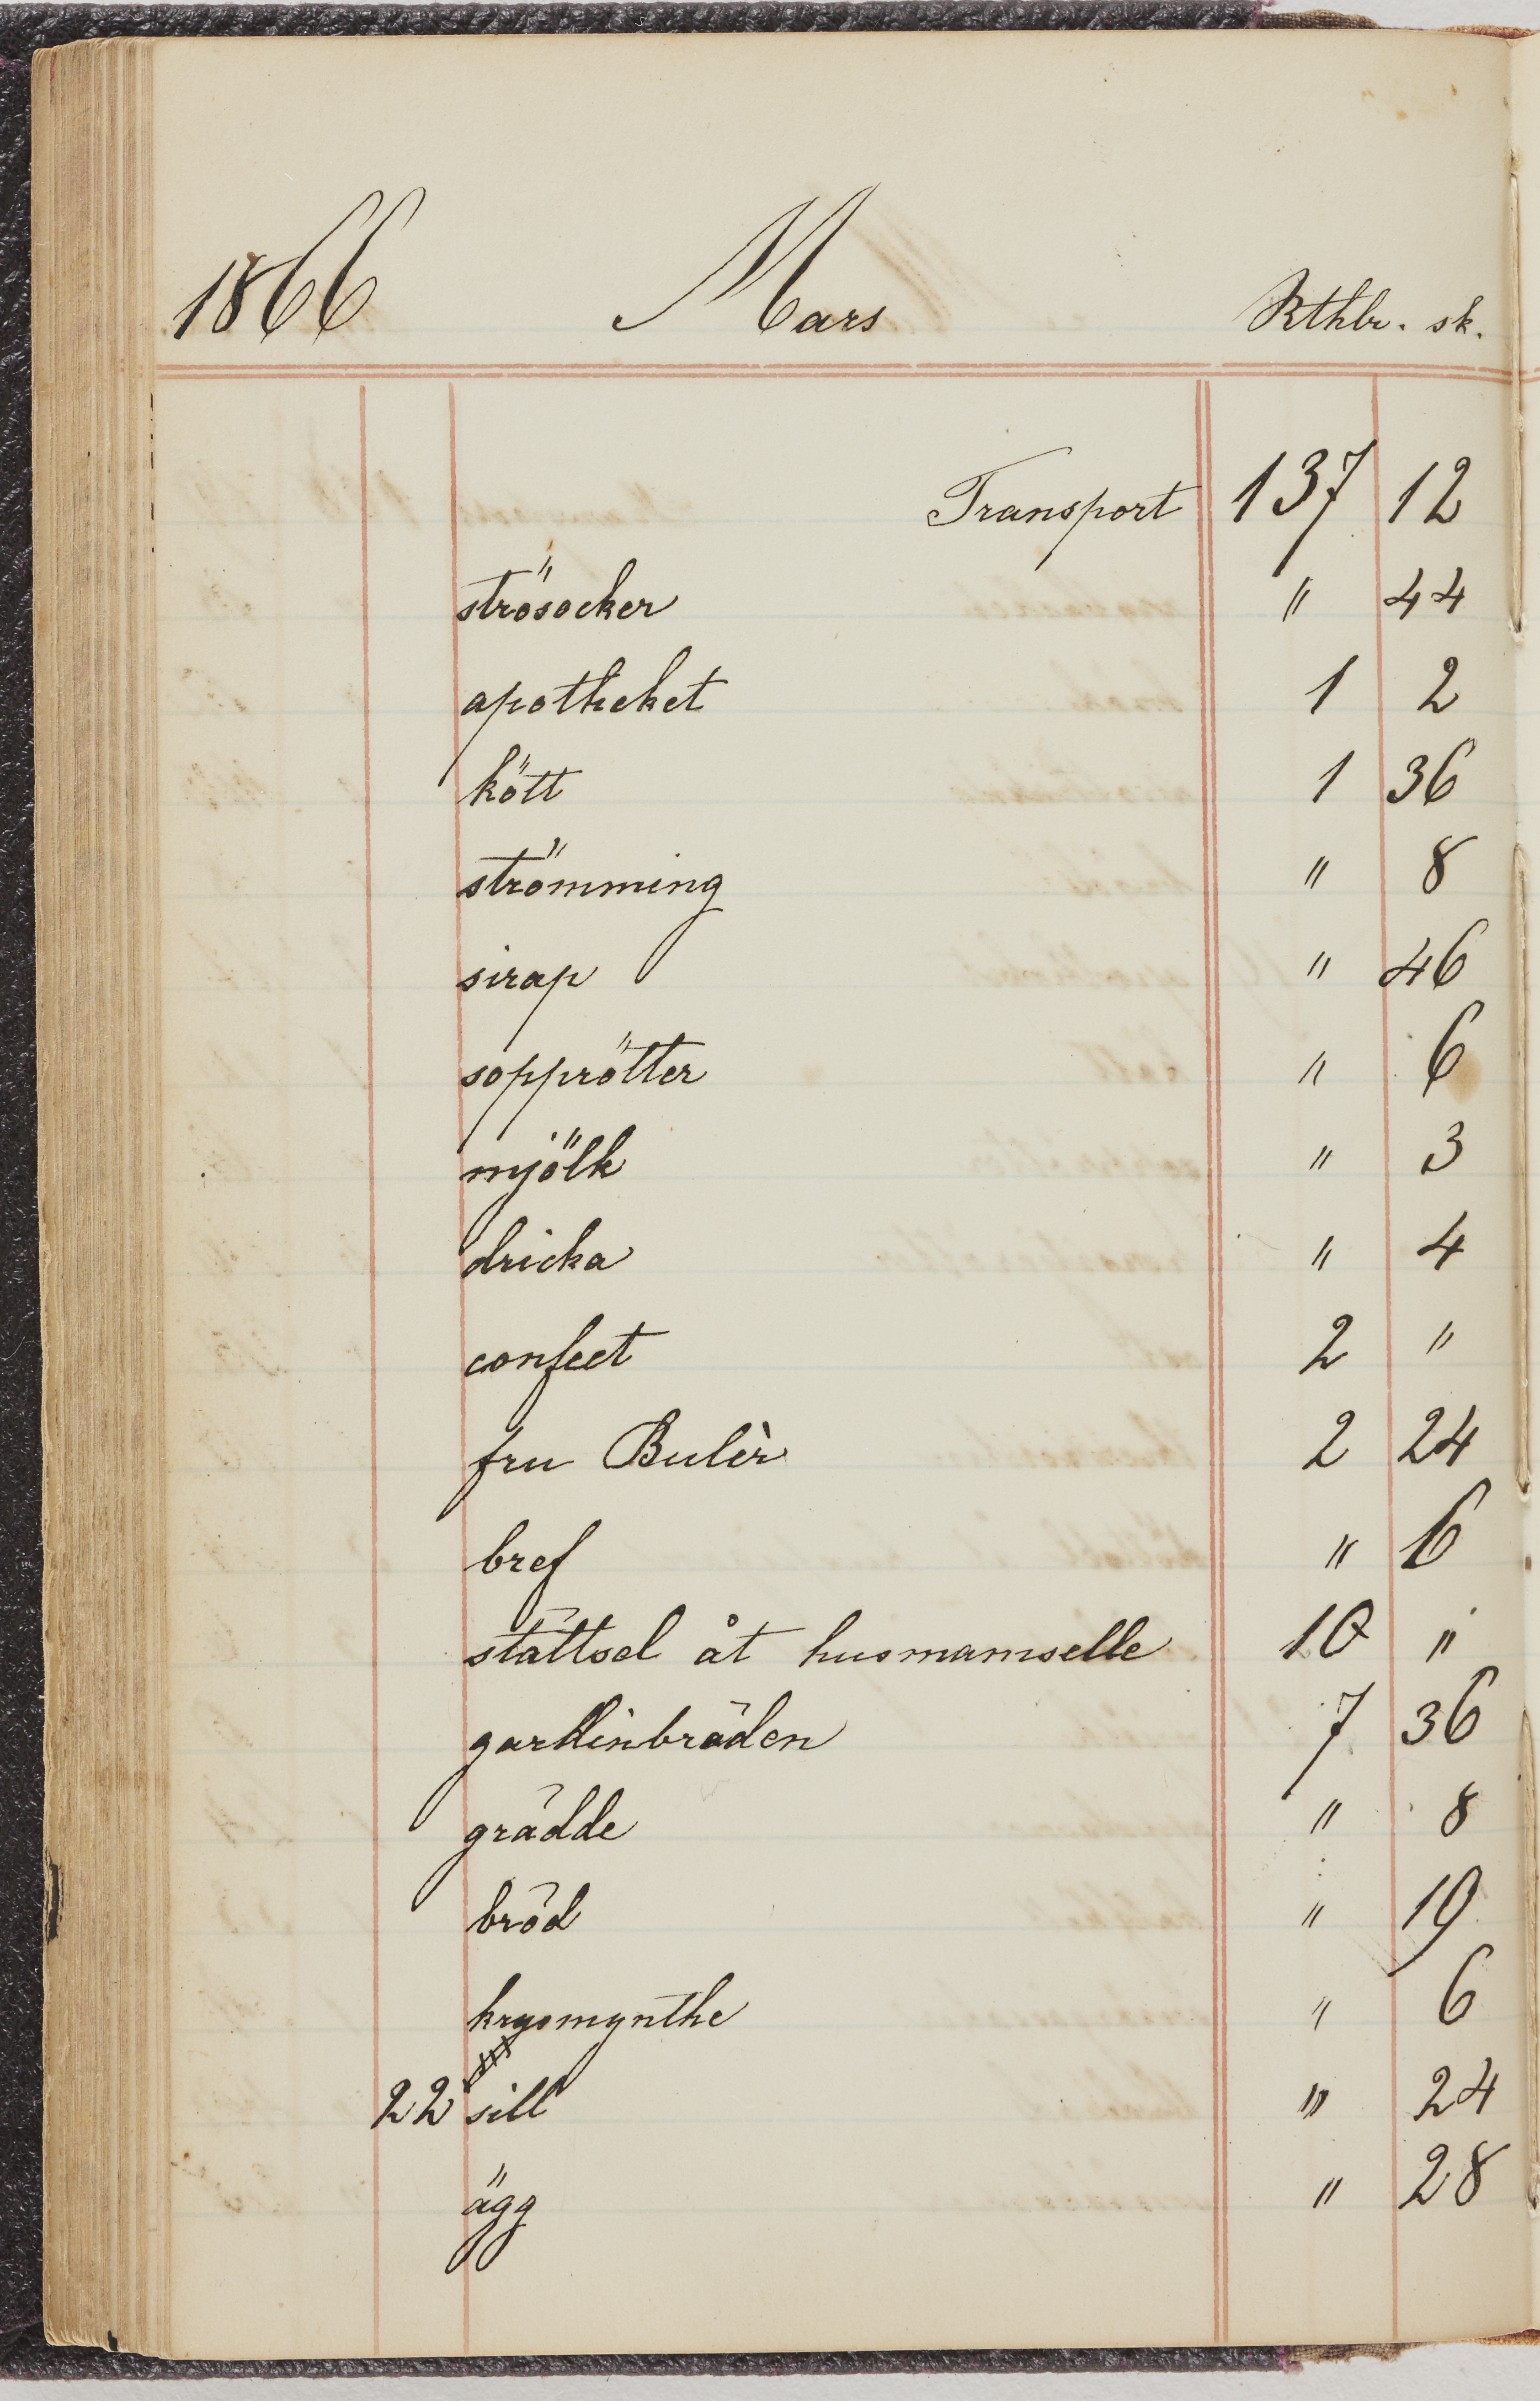 1866 Mars Rthlr. sk.
Transport 137 12
strösocker " 44
apotheket 1 2
kött 1 36
strömming " 8
sirap " 46
sopprötter " 6
mjölk " 3
dricka " 4
confect 2 "
fru Bulèr 2 24
bref " 6
stättsel åt husmamselle 10 "
gardinbräden 7 36
grädde " 8
bröd " 19
krysmynthe " 6
22 sill " 24
ägg " 28